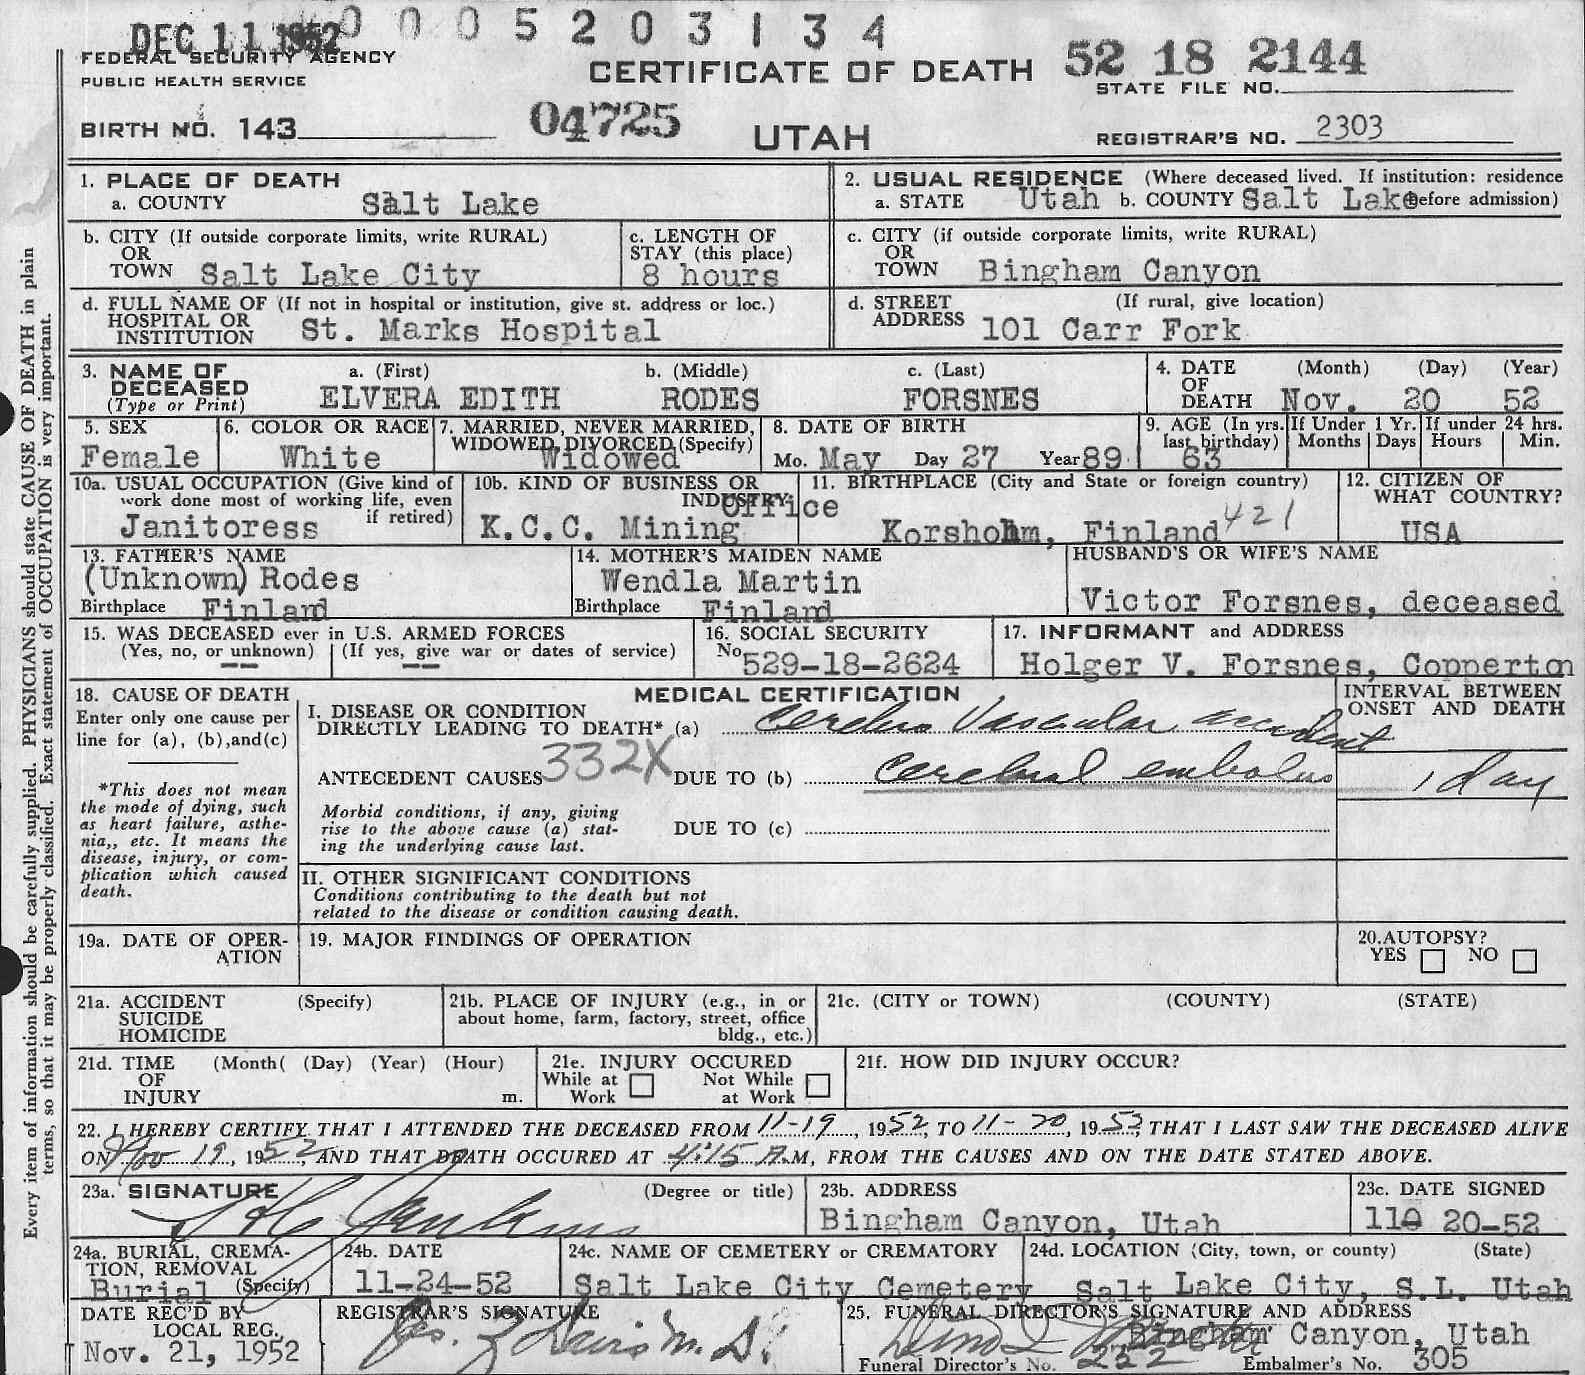 DEC 11 1952 0 0 0 5 2 0 3 1 3 4
FEDERAL SECURITY AGENCY
PUBLIC HEALTH SERVICE
CERTIFICATE OF DEATH
52 18 2144
STATE FILE NO.
BIRTH NO. 143
04725
UTAH
REGISTRAR'S NO. 2303
1. PLACE OF DEATH
a. COUNTY Salt Lake
2. USUAL RESIDENCE (Where deceased lived. If institution: residence before admission)
a. STATE Utah b. COUNTY Salt Lake
b. CITY (If outside corporate limits, write RURAL)
OR
TOWN Salt Lake City
c. LENGTH OF
STAY (this place)
8 hours
c. CITY (if outside corporate limits, write RURAL)
OR
TOWN Bingham Canyon
d. FULL NAME OF (If not in hospital or institution, give st. address or loc.)
HOSPITAL OR
INSTITUTION St. Marks Hospital
d. STREET (If rural, give location)
ADDRESS 101 Carr Fork
3. NAME OF
DECEASED
(Type or Print)
a. (First) b. (Middle) c. (Last)
ELVERA EDITH RODES FORSNES
4. DATE (Month) (Day) (Year)
OF
DEATH Nov. 20 52
5. SEX
Female
6. COLOR OR RACE
White
7. MARRIED, NEVER MARRIED,
WIDOWED, DIVORCED (Specify)
Widowed
8. DATE OF BIRTH
Mo. May Day 27 Year 89
9. AGE (In yrs. last birthday)
63
If Under 1 Yr. If under 24 hrs.
Months Days Hours Min.
10a. USUAL OCCUPATION (Give kind of
work done most of working life, even
if retired)
Janitoress
10b. KIND OF BUSINESS OR
INDUSTRY
Office
K.C.C. Mining
11. BIRTHPLACE (City and State or foreign country)
Korsholm, Finland 421
12. CITIZEN OF
WHAT COUNTRY?
USA
13. FATHER'S NAME
(Unknown) Rodes
Birthplace Finland
14. MOTHER'S MAIDEN NAME
Wendla Martin
Birthplace Finland
HUSBAND'S OR WIFE'S NAME
Victor Forsnes, deceased
15. WAS DECEASED ever in U.S. ARMED FORCES
(Yes, no, or unknown) (If yes, give war or dates of service)
-- --
16. SOCIAL SECURITY
No. 529-18-2624
17. INFORMANT and ADDRESS
Holger V. Forsnes, Copperton
18. CAUSE OF DEATH
Enter only one cause per
line for (a), (b),and(c)
*This does not mean
the mode of dying, such
as heart failure, asthe-
nia,, etc. It means the
disease, injury, or com-
plication which caused
death.
MEDICAL CERTIFICATION
INTERVAL BETWEEN
ONSET AND DEATH
I. DISEASE OR CONDITION
DIRECTLY LEADING TO DEATH* (a) Cerebro Vascular accident
ANTECEDENT CAUSES 332X DUE TO (b) Cerebral embolus 1 day
Morbid conditions, if any, giving
rise to the above cause (a) stat-
ing the underlying cause last.
DUE TO (c)
II. OTHER SIGNIFICANT CONDITIONS
Conditions contributing to the death but not
related to the disease or condition causing death.
19a. DATE OF OPER-
ATION
19. MAJOR FINDINGS OF OPERATION
20.AUTOPSY?
YES NO
21a. ACCIDENT (Specify)
SUICIDE
HOMICIDE
21b. PLACE OF INJURY (e.g., in or
about home, farm, factory, street, office
bldg., etc.)
21c. (CITY or TOWN) (COUNTY) (STATE)
21d. TIME (Month( (Day) (Year) (Hour)
OF
INJURY m.
21e. INJURY OCCURED
While at Work Not While at Work
21f. HOW DID INJURY OCCUR?
22. I HEREBY CERTIFY THAT I ATTENDED THE DECEASED FROM 11-19, 1952, TO 11-20, 1952, THAT I LAST SAW THE DECEASED ALIVE
ON Nov 19, 1952, AND THAT DEATH OCCURED AT 4:15 A.M, FROM THE CAUSES AND ON THE DATE STATED ABOVE.
23a. SIGNATURE (Degree or title)
Jenkins
23b. ADDRESS
Bingham Canyon, Utah
23c. DATE SIGNED
110 20-52
24a. BURIAL, CREMA-
TION, REMOVAL
Burial (Specify)
24b. DATE
11-24-52
24c. NAME OF CEMETERY or CREMATORY
Salt Lake City Cemetery
24d. LOCATION (City, town, or county) (State)
Salt Lake City, S.L. Utah
DATE REC'D BY
LOCAL REG.
Nov. 21, 1952
REGISTRAR'S SIGNATURE
Davis M.D.
25. FUNERAL DIRECTOR'S SIGNATURE AND ADDRESS
Bingham Canyon, Utah
Funeral Director's No. 232 Embalmer's No. 305
Every item of information should be carefully supplied. PHYSICIANS should state CAUSE OF DEATH in plain
terms, so that it may be properly classified. Exact statement of OCCUPATION is very important.